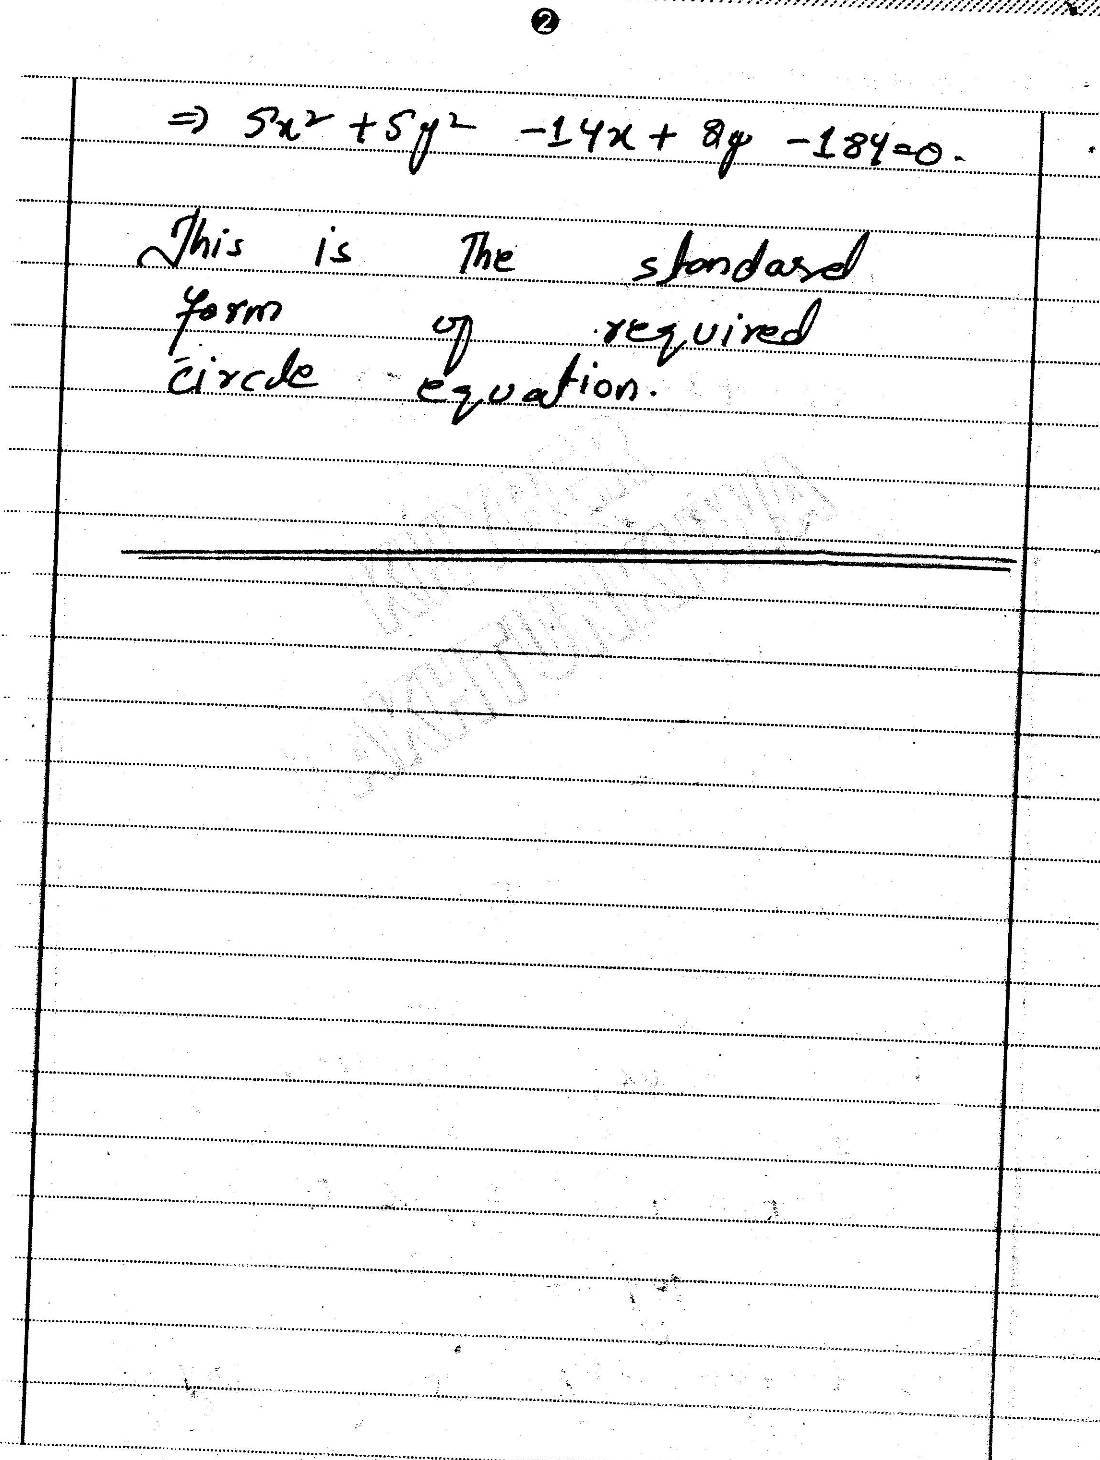 2
⇒ 5x² + 5y² - 14x + 8y - 184 = 0.
This is The standard
form of required
circle equation.